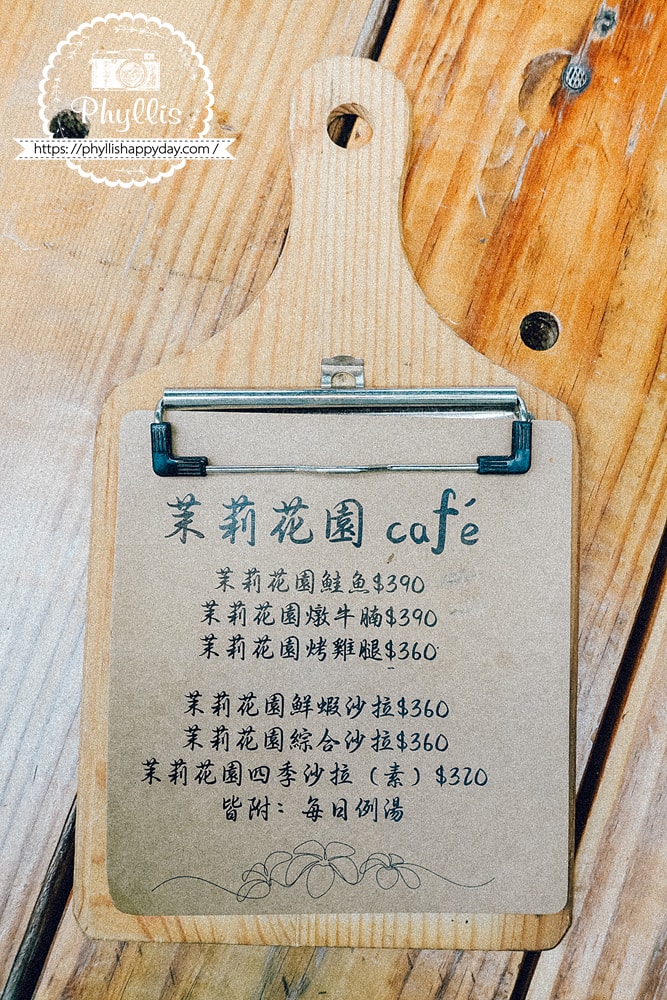 Phyllis
https://phyllishappyday.com/
茉莉花園 café
茉莉花園鮭魚$390
茉莉花園燉牛腩$390
茉莉花園烤雞腿$360
茉莉花園鮮蝦沙拉$360
茉莉花園綜合沙拉$360
茉莉花園四季沙拉（素）$320
皆附：每日例湯